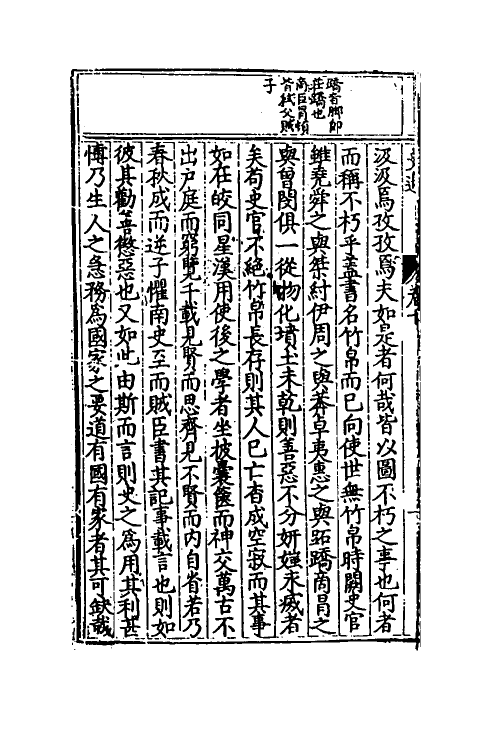 蹻音脚即
莊蹻也
商臣冒頓
皆弒父賊
子
汲汲焉孜孜焉夫如是者何哉皆以圖不朽之事也何者
而稱不朽乎盖書名竹帛而已向使世無竹帛時闕史官
雖堯舜之與桀紂伊周之與莽卓夷惠之與跖蹻商冒之
與曾閔俱一從物化墳土未乾則善惡不分妍媸永滅者
矣苟史官不絶竹帛長存則其人已亡杳成空寂而其事
如在皎同星漢用使後之學者坐披囊篋而神交萬古不
出戸庭而窮覽千載見賢而思齊見不賢而内自省若乃
春秋成而逆子懼南史至而賊臣書其記事載言也則如
彼其勸善懲惡也又如此由斯而言則史之爲用其利甚
慱乃生人之急務爲國家之要道有國有家者其可缺哉